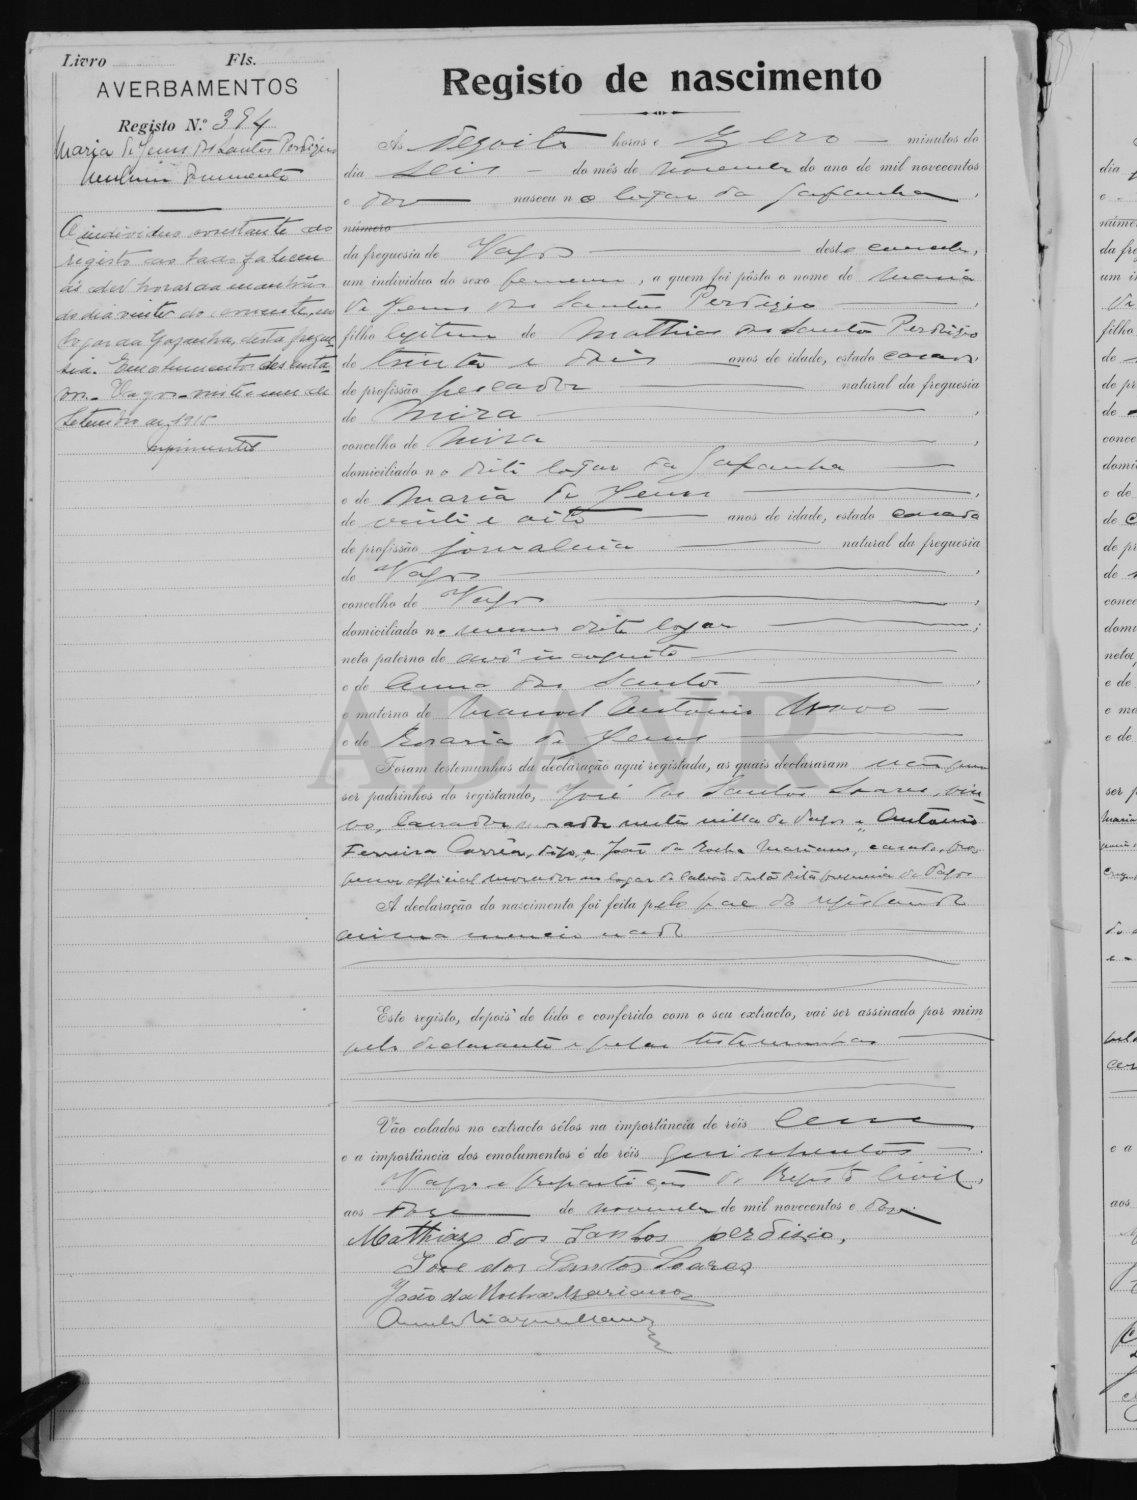 Livro Fls.
AVERBAMENTOS
Registo N.º 394
Maria de Jesus dos Santos Perdigão
Nenhum documento
O individuo constante do
registo ao lado faleceu
ás dez horas da manhã
do dia vinte do corrente, no
logar da Gafanha, desta fregue-
sia. Emolumentos
Vagos vinte e um de
Setembro de 1915
Registo de nascimento
Ás dezoito horas e zero minutos do
dia seis do mês de novembro do ano de mil novecentos
e doze nasceu no logar da Gafanha,
número
da freguesia de Vagos deste concelho,
um individuo do sexo femenino, a quem foi pôsto o nome de Maria
de Jesus dos Santos Perdigão,
filho legitimo de Mathias dos Santos Perdigão
de trinta e dois anos de idade, estado casado,
de profissão pescador natural da freguesia
de Mira,
concelho de Mira,
domiciliado no dito logar da Gafanha
e de Maria de Jesus,
de vinte e oito anos de idade, estado casada
de profissão jornaleira natural da freguesia
de Vagos,
concelho de Vagos,
domiciliado no mesmo dito logar;
neto paterno de avô incognito
e de Anna dos Santos,
e materno de Manoel Antonio Novo
e de Rosaria de Jesus
Foram testemunhas da declaração aqui registada, as quais declararam não querer
ser padrinhos do registando, José dos Santos Soares, viu-
vo, lavrador morador nesta villa de Vagos e Antonio
Ferreira Corrêa, digo, e João da Rocha Mariano, casado, pro-
fessor official morador no logar de Calvão desta dita freguesia de Vagos
A declaração do nascimento foi feita pelo pae do registando
acima mencionado
Este registo, depois de lido e conferido com o seu extracto, vai ser assinado por mim
pelo declarante e pelas testemunhas
Vão colados no extracto sêlos na importância de réis cem
e a importância dos emolumentos é de réis quinhentos.
Vagos e Repartição do Registo Civil,
aos doze de novembro de mil novecentos e doze.
Mathias dos Santos perdigão,
José dos Santos Soares
João da Rocha Mariano
ADAVR